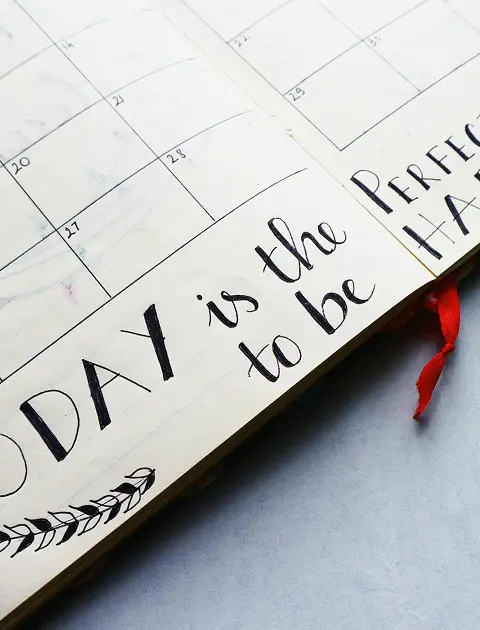 14
21
20
28
27
ODAY is the
to be
22
29
PERFEC
HA